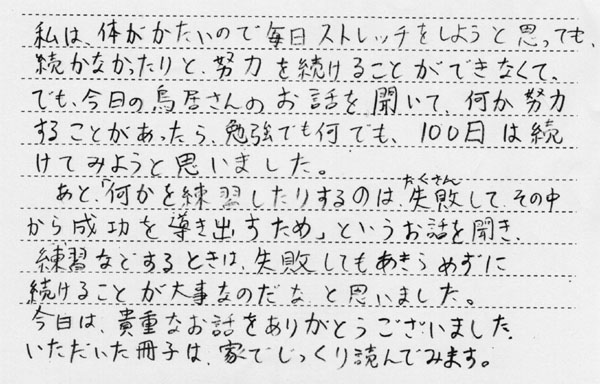 私は、体がかたいので毎日ストレッチをしようと思っても、
続かなかったりと、努力を続けることができなくて、
でも、今日の鳥居さんのお話を聞いて、何か努力
することがあったら、勉強でも何でも、100日は続
けてみようと思いました。
あと、「何かを練習したりするのは、たくさん失敗して、その中
から成功を導き出すため」というお話を聞き、
練習などするときは、失敗してもあきらめずに
続けることが大事なのだな と思いました。
今日は、貴重なお話をありがとうございました。
いただいた冊子は、家でじっくり読んでみます。